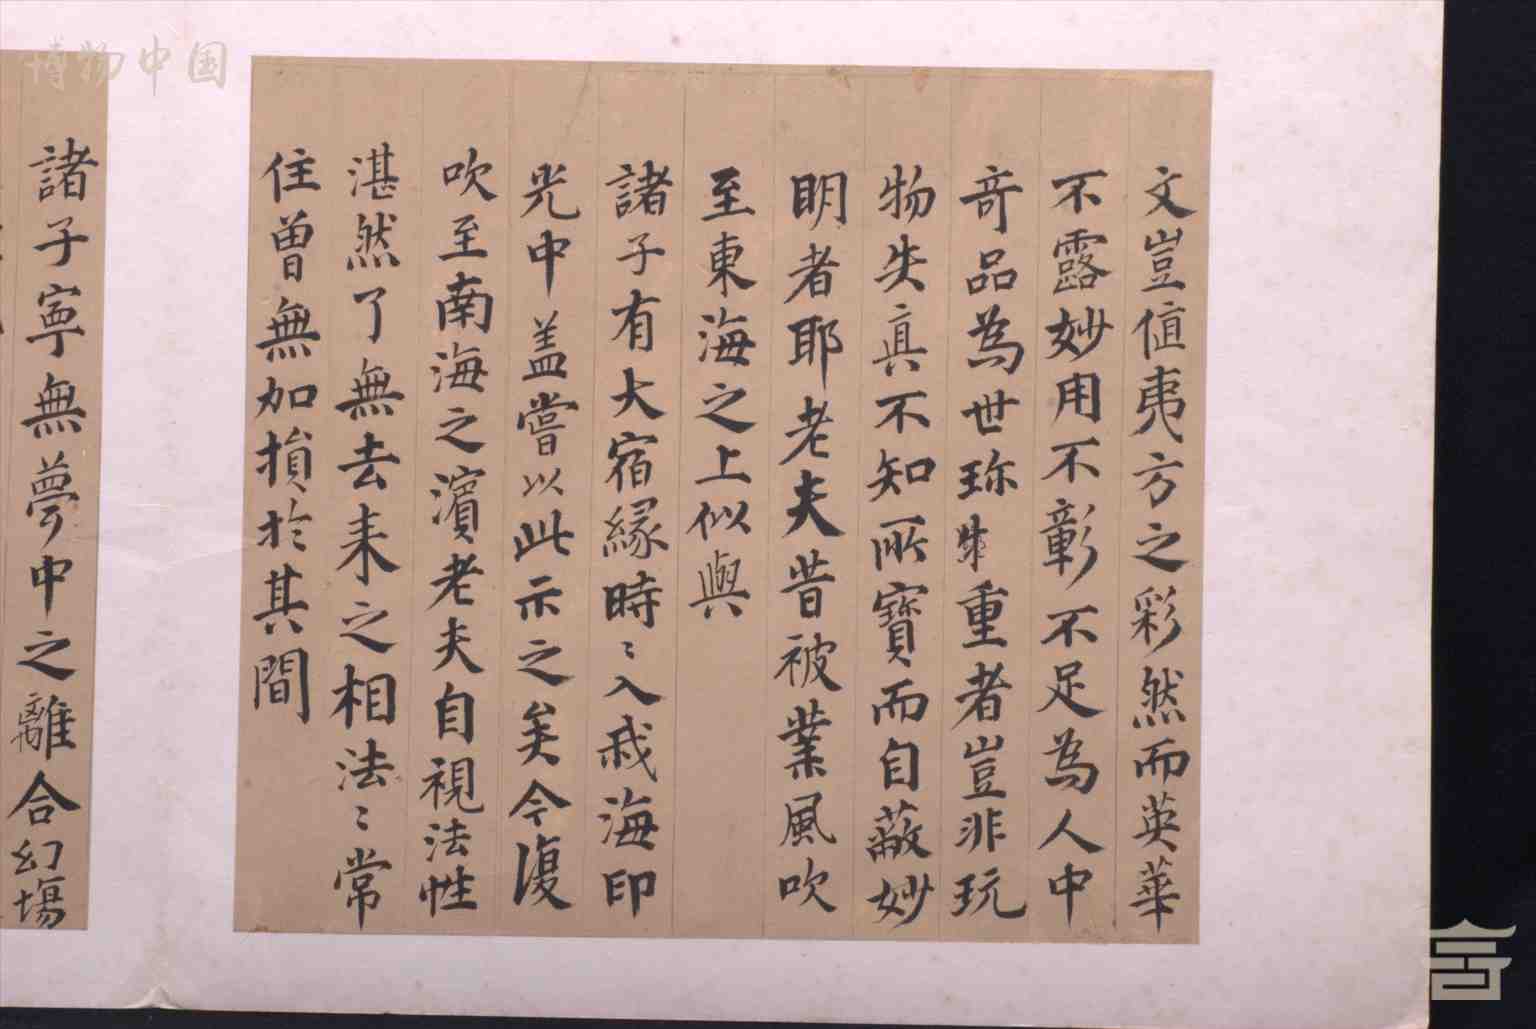 文豈值夷方之彩然而英華
不露妙用不彰不足為人中
奇品為世珍重者豈非玩
物失真不知所寶而自蔽妙
明者耶老夫昔被業風吹
至東海之上似與
諸子有大宿緣時〻入我海印
光中盖嘗以此示之矣今復
吹至南海之濱老夫自視法性
湛然了無去来之相法〻常
住曾無加損於其間
諸子寧無夢中之離合幻場
博物中国